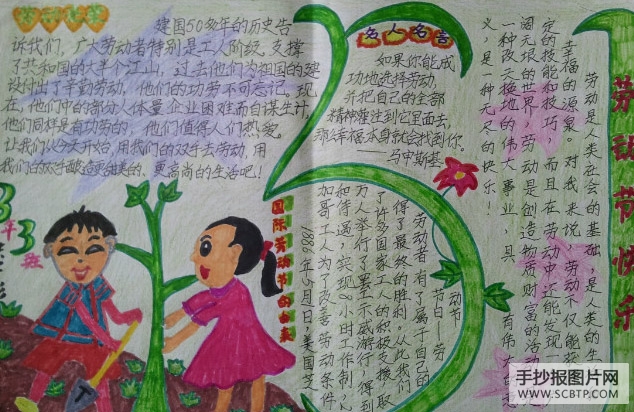 建国50多年的历史告
诉我们，广大劳动者特别是工人阶级，支撑
了共和国的大半个江山，过去他们为祖国的建
设付出了辛勤劳动，他们的功劳不可忘记，现
在，他们中的部分人体量企业困难而自谋生计，
他们同样是有功劳的，他们值得人们热爱。
让我们从今天开始，用我们的双手去劳动，用
我们的双手酿造更甜美的、更高尚的生活吧！
3年3班
名人名言
如果你能成
功地选择劳动，
并把自己的全部
精神灌注到它里面去，
那么幸福本身就会找到你。
——马申斯基
劳动节快乐
劳动是人类社会的基础，是人类的生
幸福的源泉。对我来说，劳动不仅能获
定的技能和技巧，而且在劳动中还能发现一
阔无垠的世界。劳动是创造物质财富的活动
一种改天换地的伟大事业，具有伟大的
义，是一种无尽的快乐！
国际劳动节的由来
1886年5月1日，美国芝
加哥工人为了改善劳动条件
和待遇，实现8小时工作制，
万人举行了罢工示威游行，得到
了许多国家工人的积极支援，取
得了最终的胜利。从此我们
劳动者有了属于自己的
节日——劳
动节
手抄报图片网
WWW.SCBTP.COM